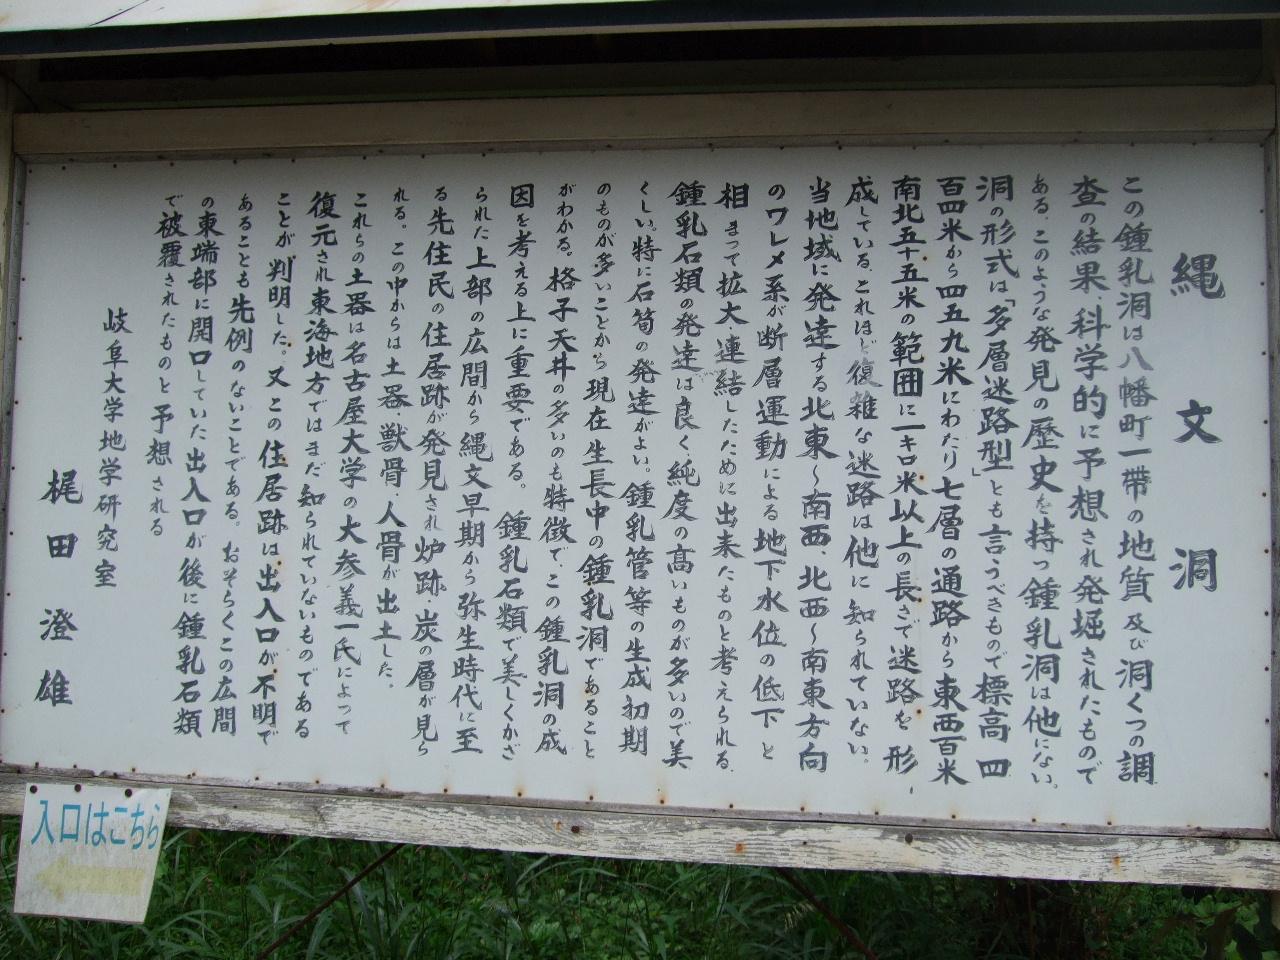 縄文洞
この鍾乳洞は八幡町一帯の地質及び洞くつの調
査の結果、科学的に予想され発堀されたもので
ある。このような発見の歴史を持つ鍾乳洞は他にない。
洞の形式は「多層迷路型」とも言うべきもので標高四
百四米から四五九米にわたり七層の通路から東西百米
南北五十五米の範囲に一キロ米以上の長さで迷路を形
成している。これほど復雑な迷路は他に知られていない。
当地域に発達する北東〜南西、北西〜南東方向
のワレメ系が断層運動による地下水位の低下と
相まって拡大、連結したために出来たものと考えられる。
鍾乳石類の発達は良く純度の高いものが多いので美
くしい。特に石筍の発達がよい。鍾乳管等の生成初期
のものが多いことから現在生長中の鍾乳洞であること
がわかる。格子天井の多いのも特徴で、この鍾乳洞の成
因を考える上に重要である。鍾乳石類で美しくかざ
られた上部の広間から縄文早期から弥生時代に至
る先住民の住居跡が発見され炉跡、炭の層が見ら
れる。この中からは土器、獣骨、人骨が出土した。
これらの土器は名古屋大学の大参義一氏によって
復元され東海地方ではまだ知られていないものである
ことが判明した。又この住居跡は出入口が不明で
あることも先例のないことである。おそらくこの広間
の東端部に開口していた出入口が後に鍾乳石類
で被覆されたものと予想される
岐阜大学地学研究室
梶田澄雄
入口はこちら